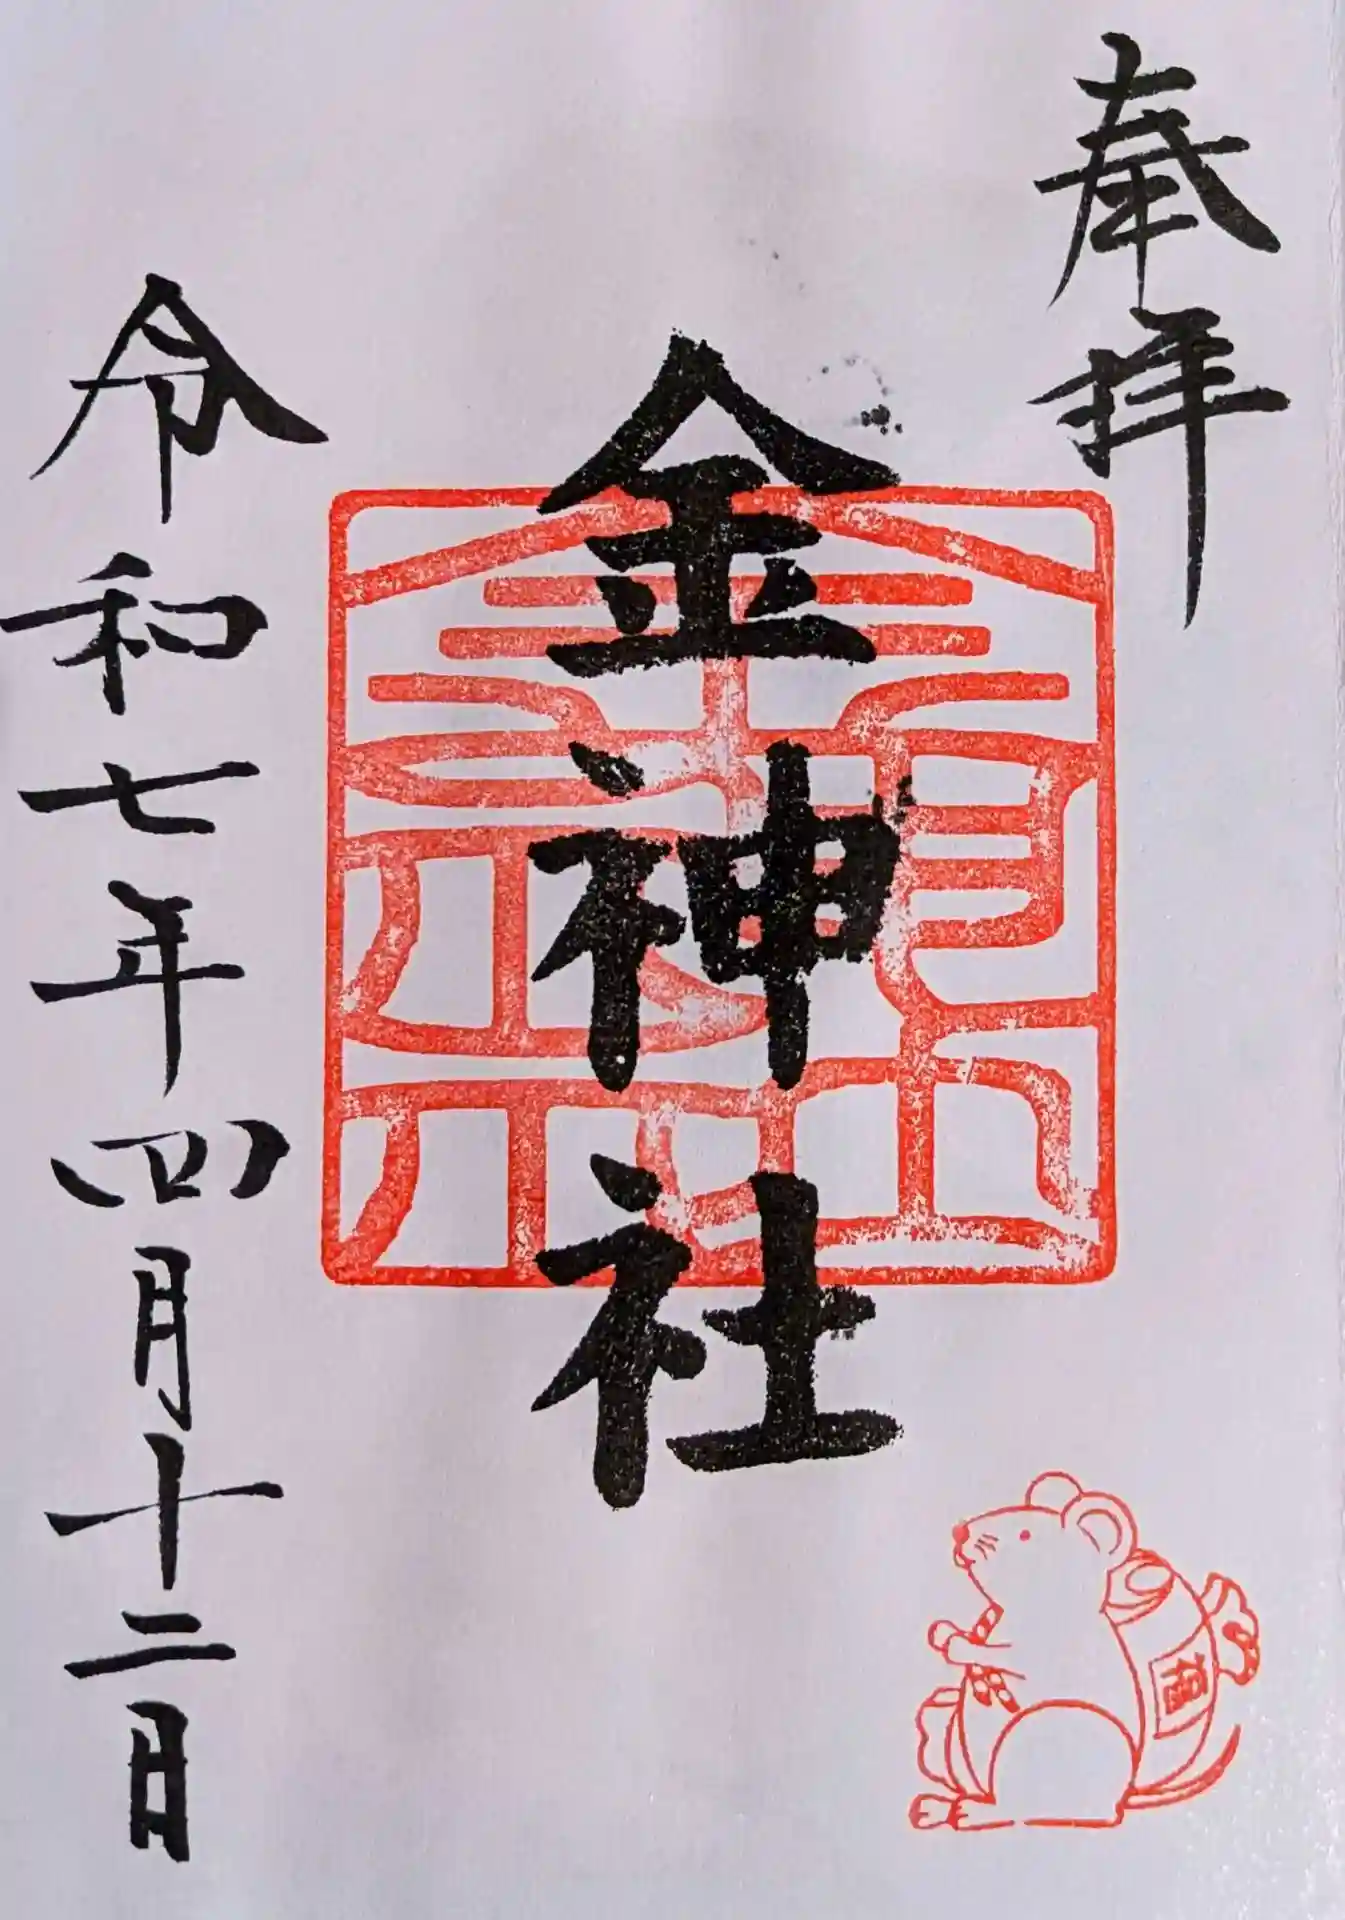 奉拝
金神社
令和七年四月十二日
福